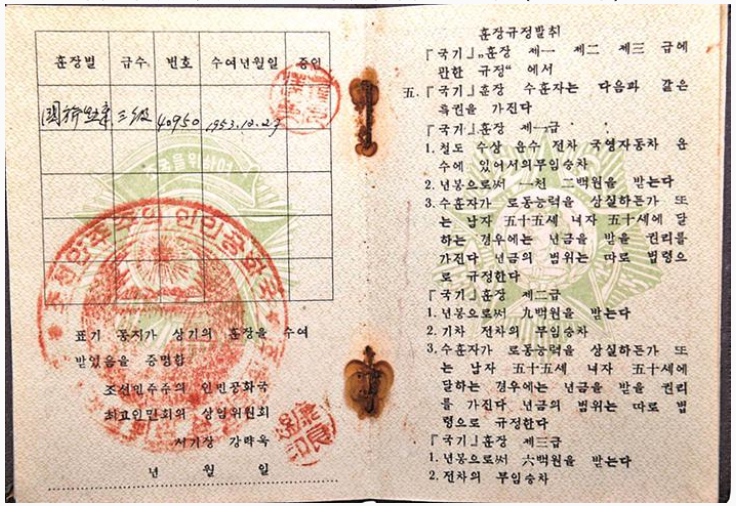 훈장별 급수 번호 수여년월일 증인
三级 40950 1953.10.27
표기 동지가 상기의 훈장을 수여
받었음을 증명함
조선민주주의 인민공화국
최고인민회의 상임위원회
서기장 강량욱
년 월 일
조선민주주의인민공화국
훈장규정발취
「국기」„훈장 제一 제二 제三 급에
관한 규정“ 에서
五. 「국기」훈장 수훈자는 다음과 같은
특권을 가진다
「국기」훈장 제一급
1. 철도 수상 운수 전차 국영자동차 운
수에 있어서의무임승차
2. 년봉으로써 一천 二백원을 받는다
3. 수훈자가 로동능력을 상실하든가 또
는 남자 五十五세 녀자 五十세에 달
하는 경우에는 년금을 받을 권리를
가진다 년금의 범위는 따로 법령으
로 규정한다
「국기」훈장 제二급
1. 년봉으로써 九백원을 받는다
2. 기차 전차의 무임승차
3. 수훈자가 로동능력을 상실하든가 또
는 남자 五十五세 녀자 五十세에
달하는 경우에는 년금을 받을 권리
를 가진다 년금의 범위는 따로 법
령으로 규정한다
「국기」훈장 제三급
1. 년봉으로써 六백원을 받는다
2. 전차의 무임승차